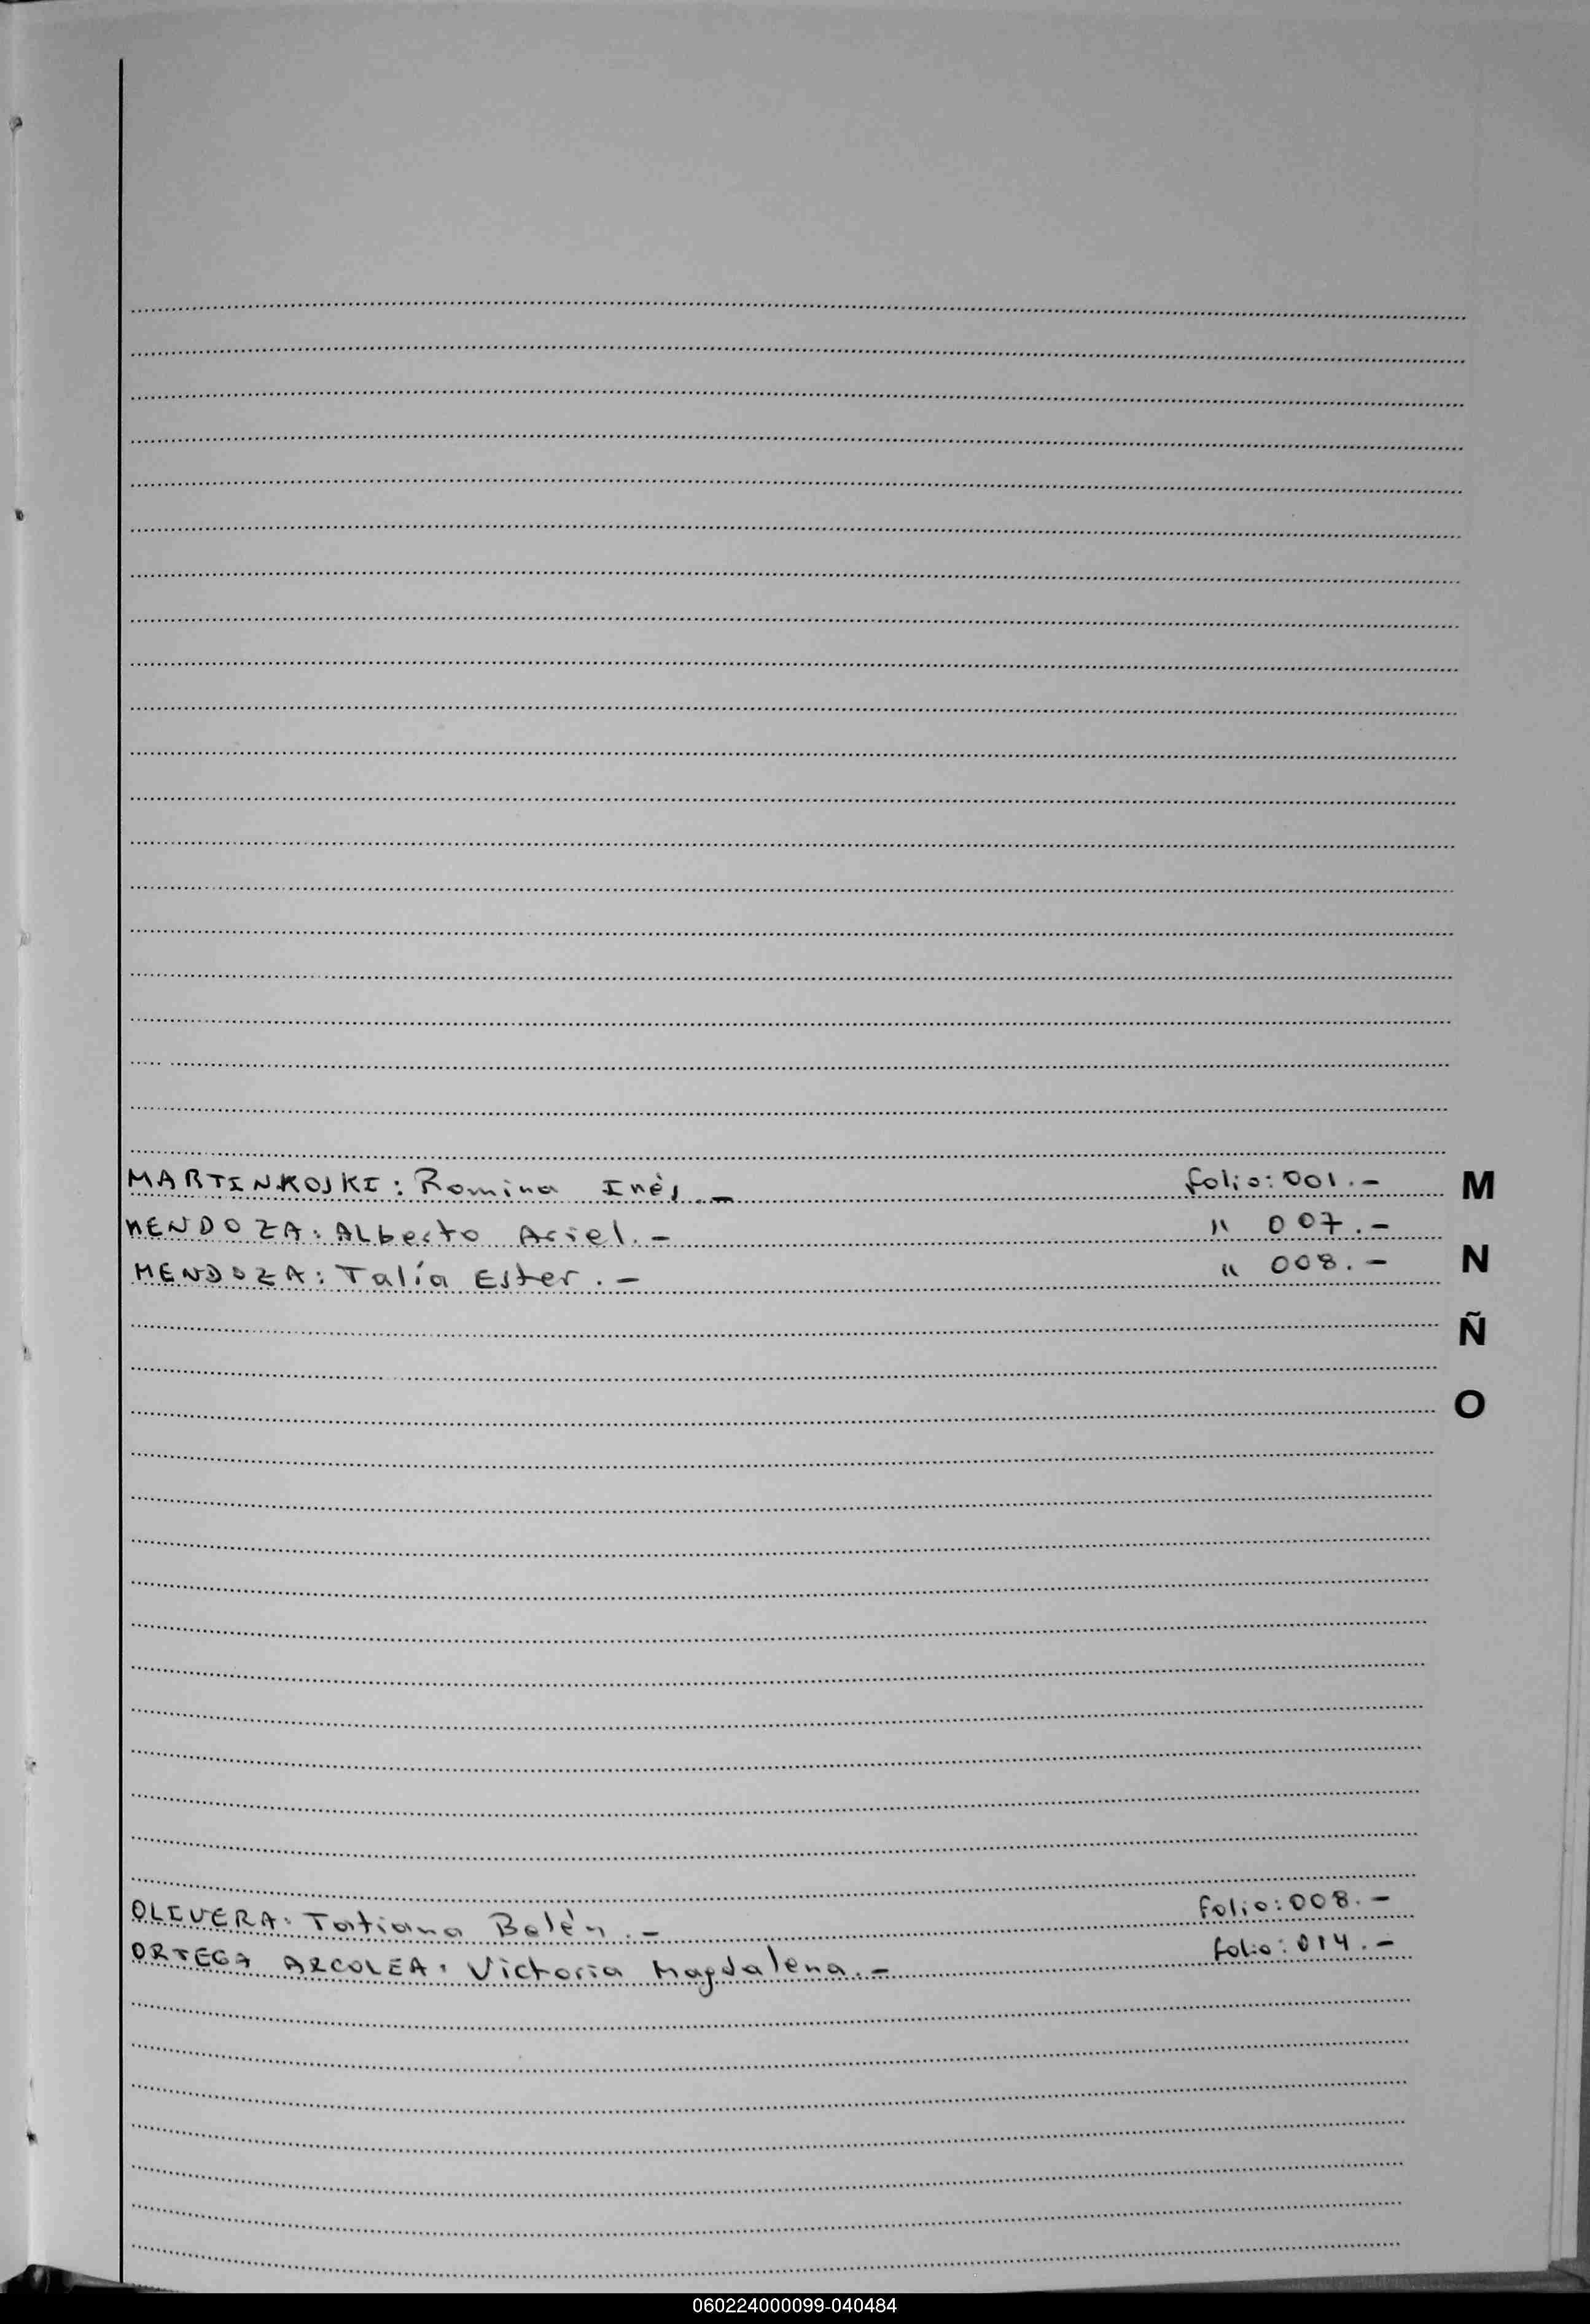 MARTINKOSKI: Romina Inés.- folio: 001.- M
MENDOZA: Alberto Ariel.- " 007.-
MENDOZA: Talía Ester.- " 008.- N
Ñ
O
OLIVERA: Tatiana Belén.- folio: 008.-
ORTEGA ARCOLEA: Victoria Magdalena.- folio: 014.-
060224000099-040484